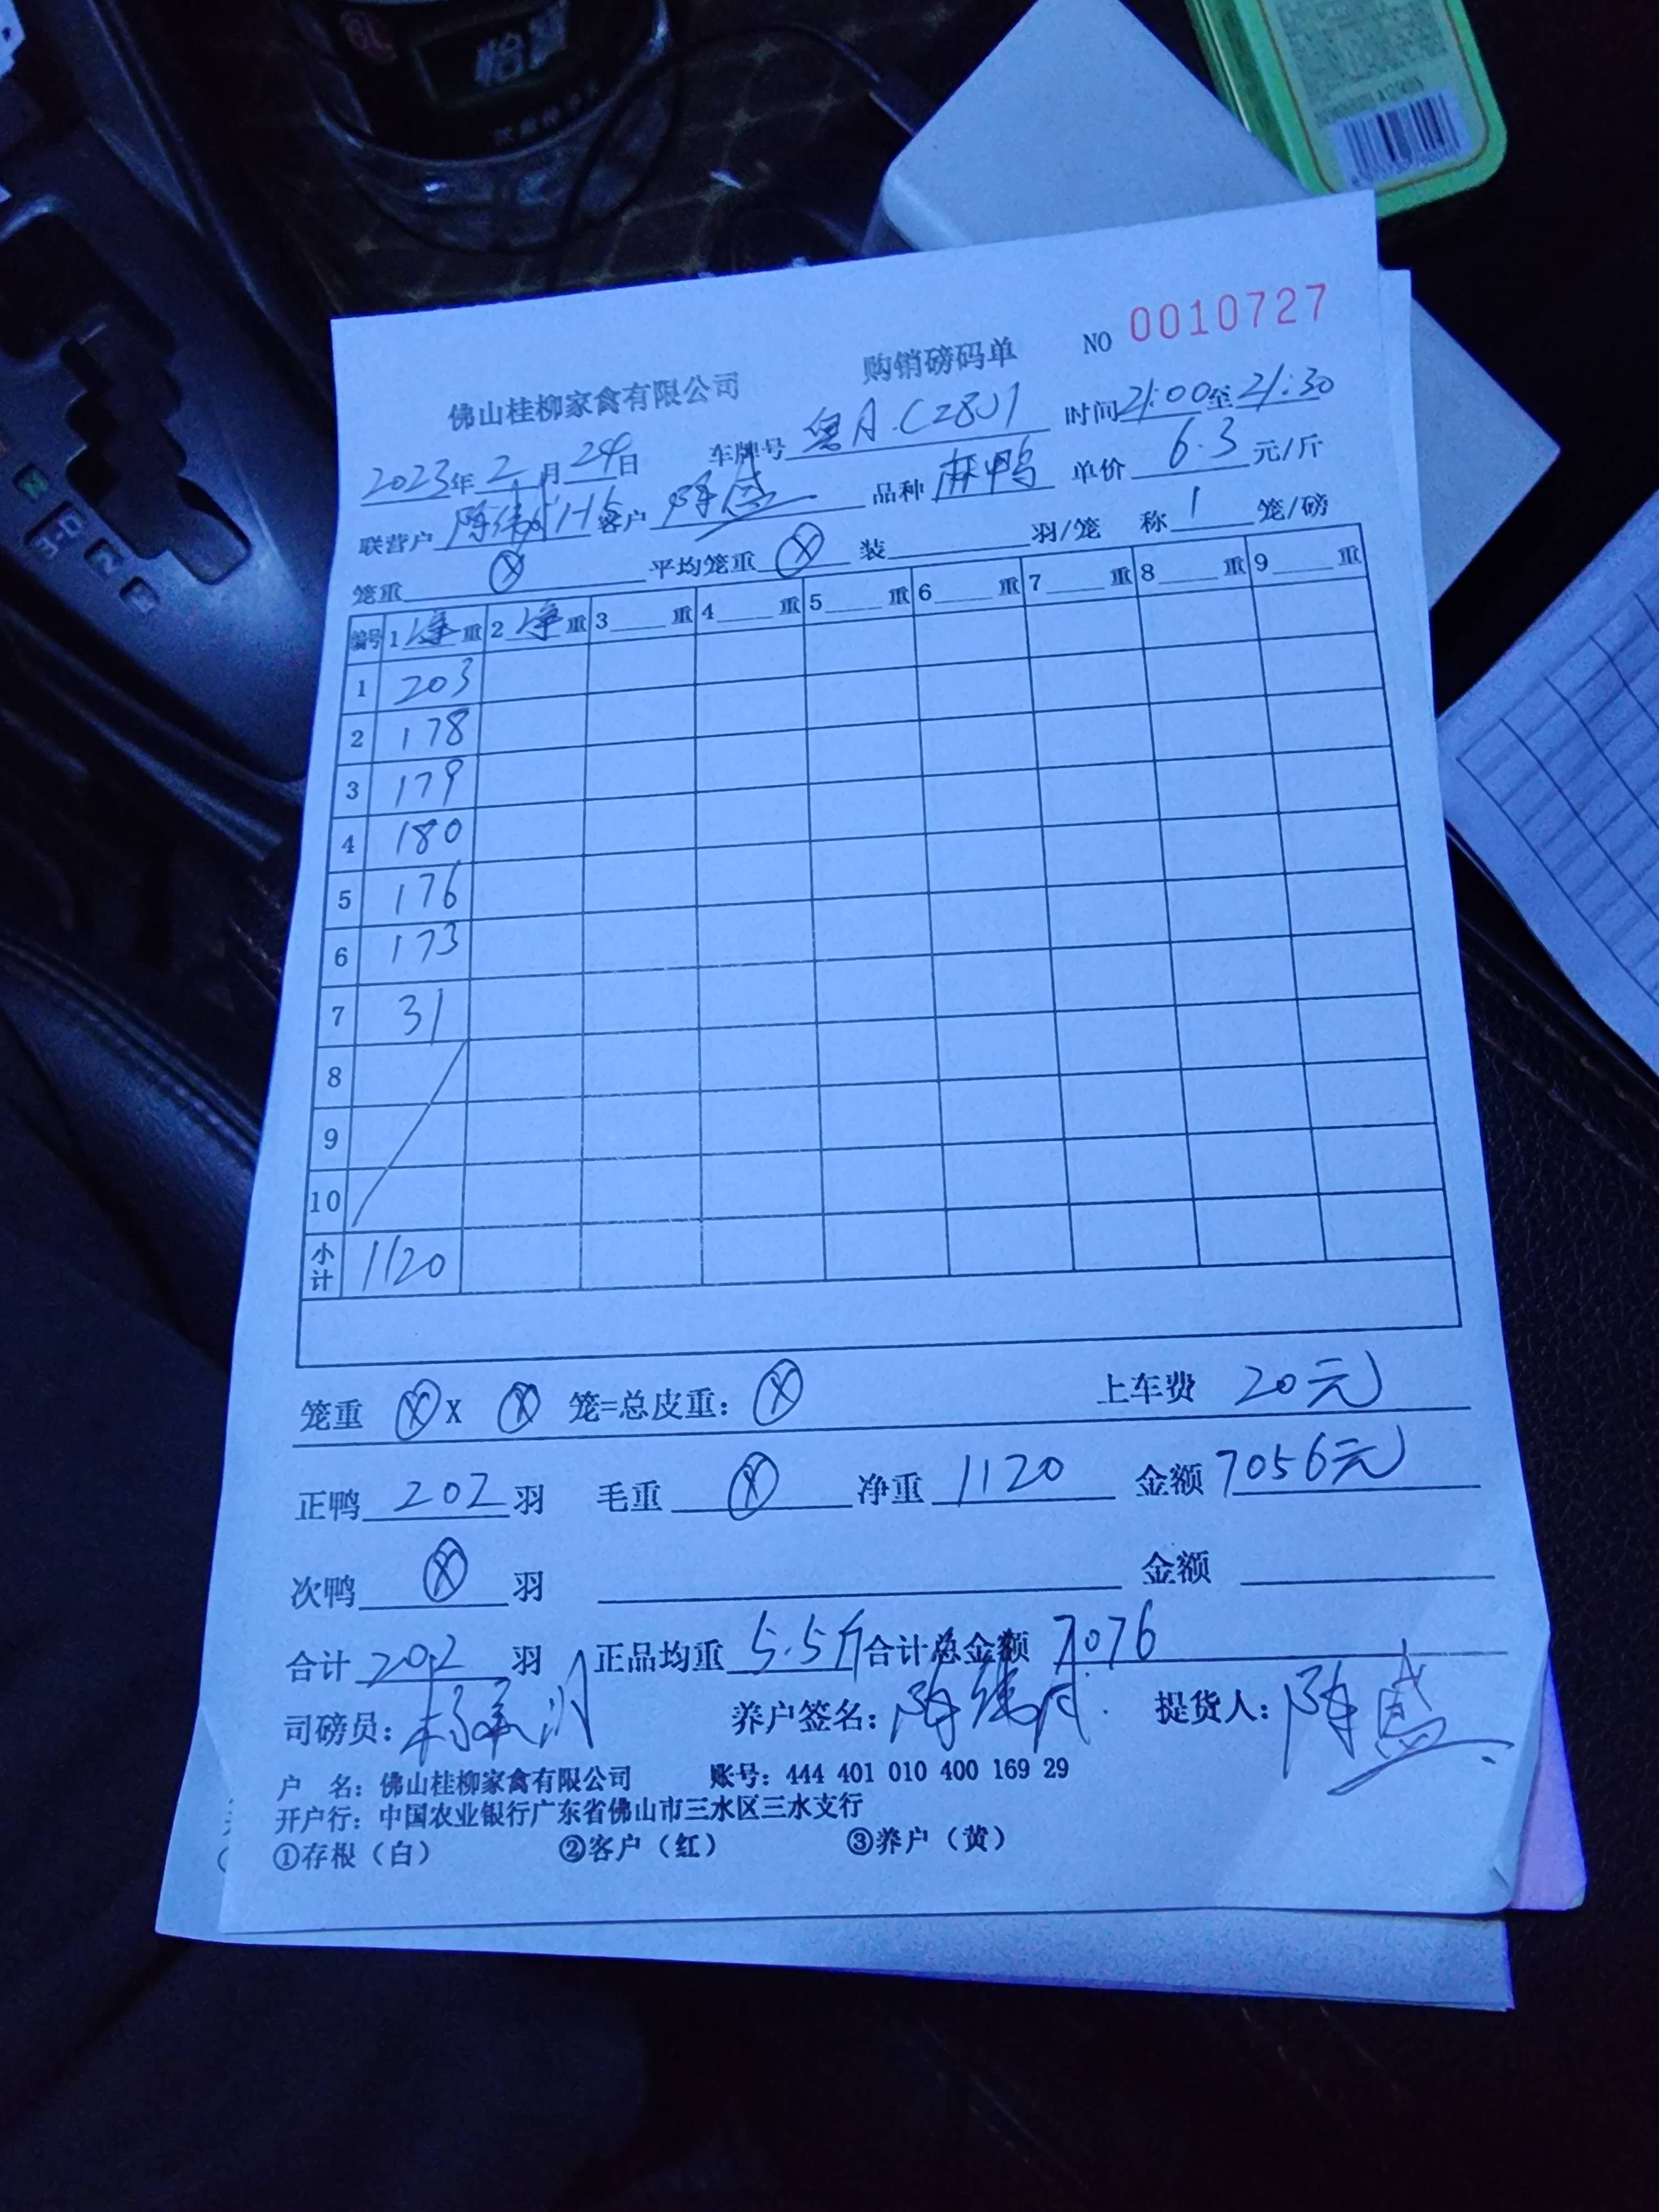 怡宝
购销磅码单 NO 0010727
佛山桂柳家禽有限公司
2023年 2 月 24日 车牌号 粤A. 时间 21:00 至 21:30
联营户 客户 陈盛 品种 麻鸭 单价 6.3 元/斤
笼重 ⓧ 平均笼重 ⓧ 装 羽/笼 称 1 笼/磅
编号 1 净 重 2 净 重 3 重 4 重 5 重 6 重 7 重 8 重 9 重
1 203
2 178
3 179
4 180
5 176
6 173
7 31
8
9
10
小计 1120
笼重 ⓧ X ⓧ 笼=总皮重: ⓧ 上车费 20元
正鸭 202 羽 毛重 ⓧ 净重 1120 金额 7056元
次鸭 ⓧ 羽 金额
合计 202 羽 正品均重 5.5斤 合计总金额 7076
司磅员: 养户签名: 提货人: 陈盛
户 名: 佛山桂柳家禽有限公司 账号: 444 401 010 400 169 29
开户行: 中国农业银行广东省佛山市三水区三水支行
①存根（白） ②客户（红） ③养户（黄）